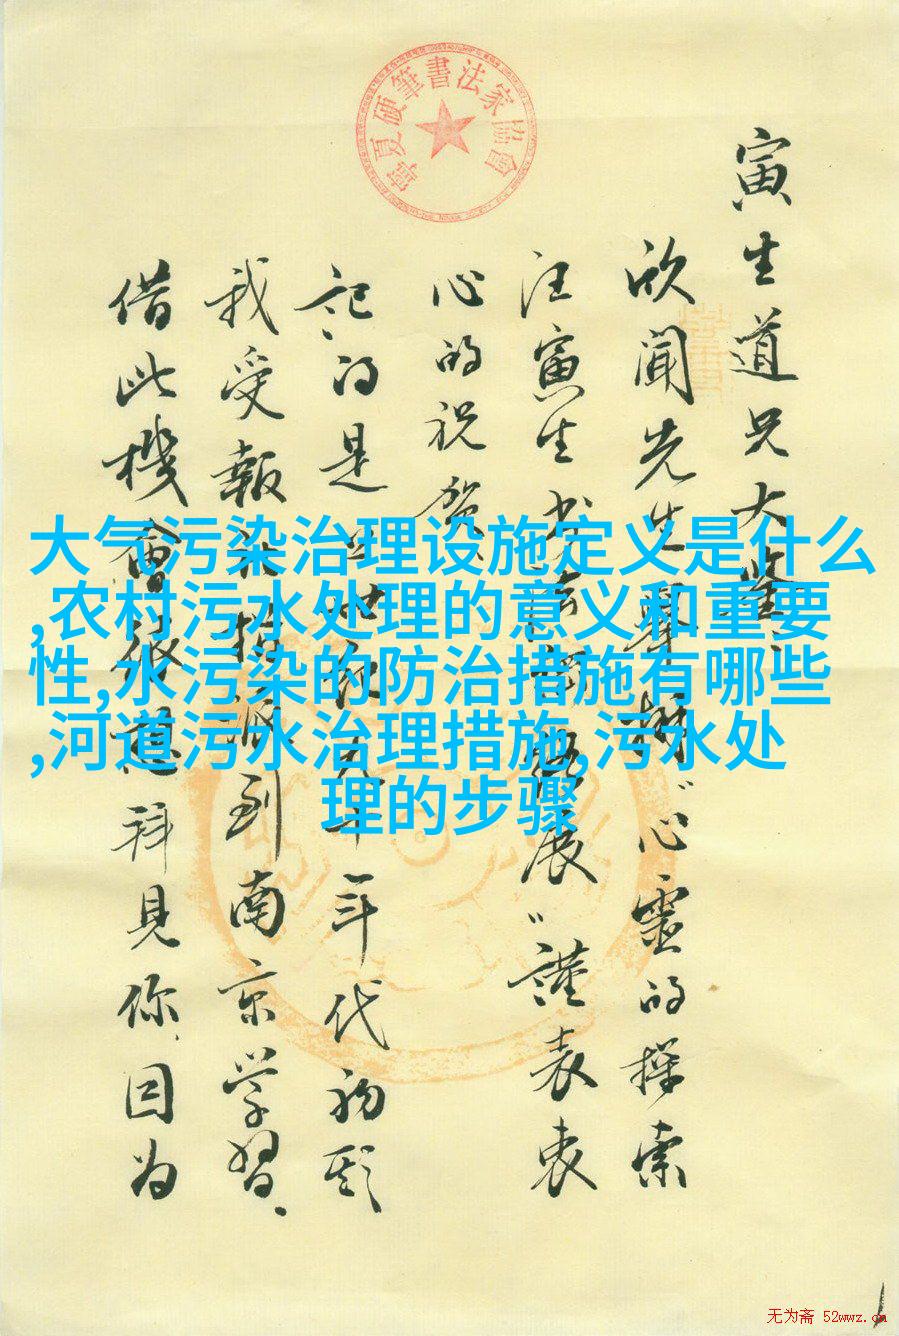 寧夏硬筆書法家協會
寅生道兄大鉴：
欣闻先生举办“心靈的探索
汪寅生书法
展”謹表衷
心的祝贺
记的是
世纪九十年代初期
我受報社
派到南京学習、
借此機會
拜見你，因为
大气污染治理设施定义是什么
,农村污水处理的意义和重要
性,水污染的防治措施有哪些
,河道污水治理措施,污水处
理的步骤
无为斋 52wwz.cn